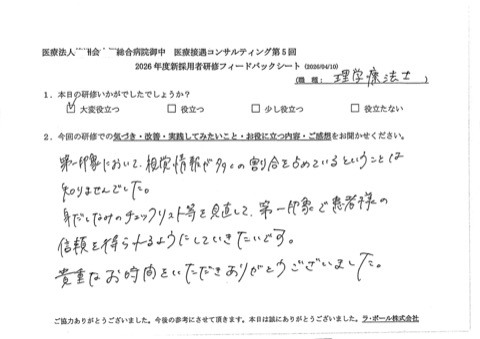 医療法人 総合病院御中 医療接遇コンサルティング第5回
2026年度新採用者研修フィードバックシート (2026/04/10)
(職 種: 理学療法士 )
1．本日の研修いかがでしたでしょうか?
☑ 大変役立つ □ 役立つ □ 少し役立つ □ 役立たない
2．今回の研修での気づき・改善・実践してみたいこと・お役に立つ内容・ご感想をお聞かせください。
第一印象において、視覚情報が多くの割合を占めているということは
知りませんでした。
身だしなみのチェックリスト等を見直して、第一印象で患者様の
信頼を得られるようにしていきたいです。
貴重なお時間をいただきありがとうございました。
ご協力ありがとうございました。今後の参考にさせて頂きます。本日は誠にありがとうございました。ラ・ポール株式会社